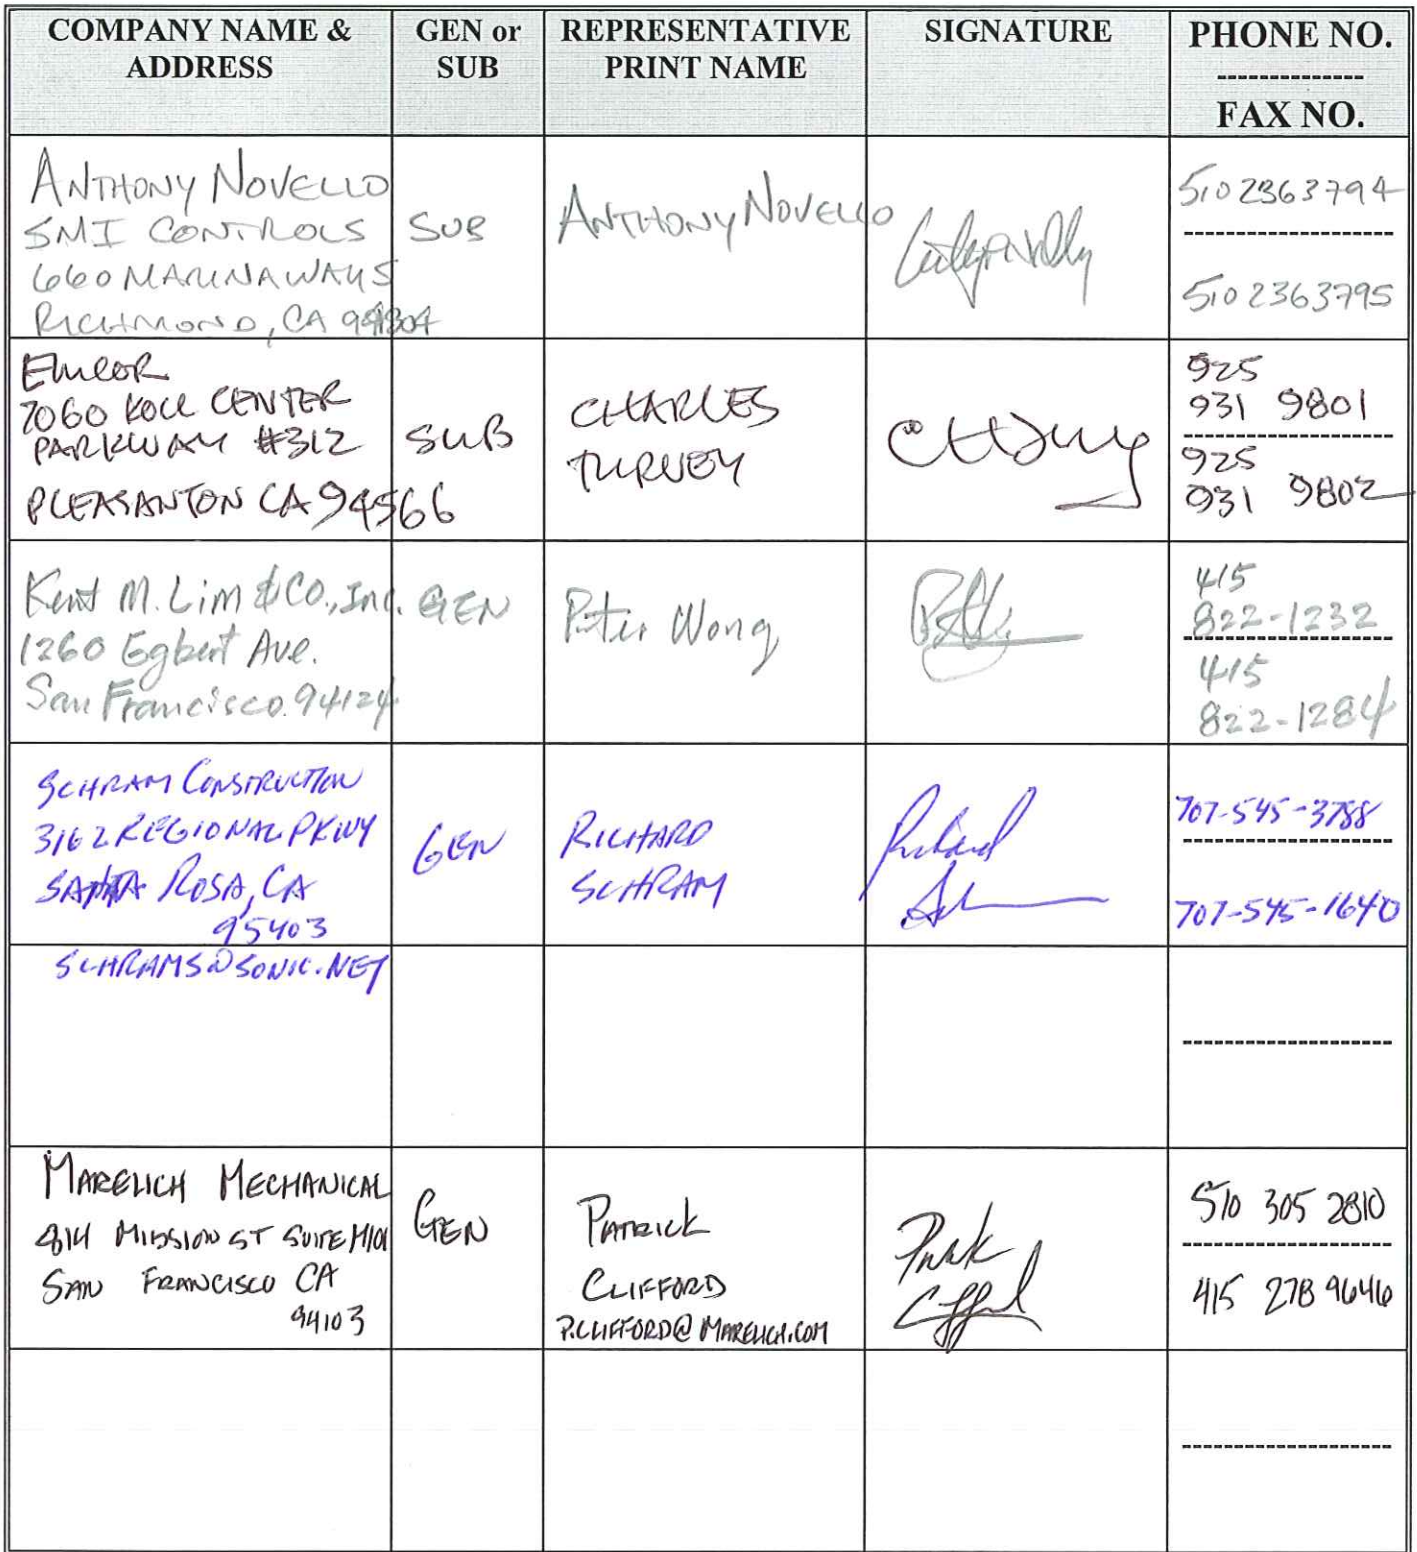 COMPANY NAME &
ADDRESS
GEN or
SUB
REPRESENTATIVE
PRINT NAME
SIGNATURE
PHONE NO.
--------------
FAX NO.
ANTHONY NOVELLO
SMI CONTROLS
660 MARINA WAY S
RICHMOND, CA 94804
SUB
ANTHONY NOVELLO
510 2363794
510 2363795
EMCOR
7060 KOLL CENTER
PARKWAY #312
PLEASANTON CA 94566
SUB
CHARLES
TURNEY
925
931 9801
925
931 9802
Kent M. Lim & CO., Inc.
1260 Egbert Ave.
San Francisco. 94124
GEN
Peter Wong
415
822-1232
415
822-1284
SCHRAM CONSTRUCTION
3162 REGIONAL PKWY
SANTA ROSA, CA
95403
SCHRAMS@SONIC.NET
GEN
RICHARD
SCHRAM
Richard
707-545-3788
707-545-1640
MARELICH MECHANICAL
814 MISSION ST SUITE M101
SAN FRANCISCO CA
94103
GEN
PATRICK
CLIFFORD
P.CLIFFORD@MARELICH.COM
510 305 2810
415 278 9646